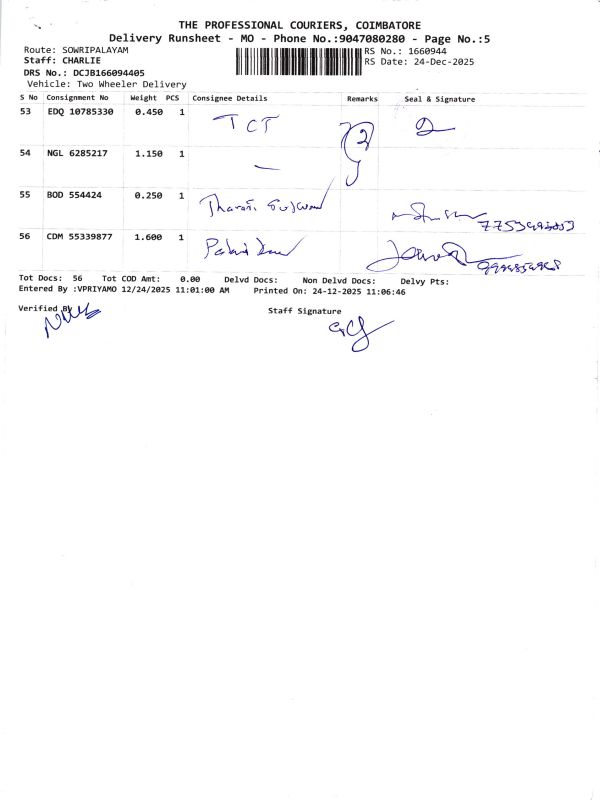 THE PROFESSIONAL COURIERS, COIMBATORE
Delivery Runsheet - MO - Phone No.:9047080280 - Page No.:5
Route: SOWRIPALAYAM
RS No.: 1660944
Staff: CHARLIE
RS Date: 24-Dec-2025
DRS No.: DCJB166094405
Vehicle: Two Wheeler Delivery
S No Consignment No Weight PCS Consignee Details Remarks Seal & Signature
53 EDQ 10785330 0.450 1 TCT
54 NGL 6285217 1.150 1 —
55 BOD 554424 0.250 1
56 CDM 55339877 1.600 1
Tot Docs: 56 Tot COD Amt: 0.00 Delvd Docs: Non Delvd Docs: Delvy Pts:
Entered By :VPRIYAMO 12/24/2025 11:01:00 AM Printed On: 24-12-2025 11:06:46
Verified By
Staff Signature